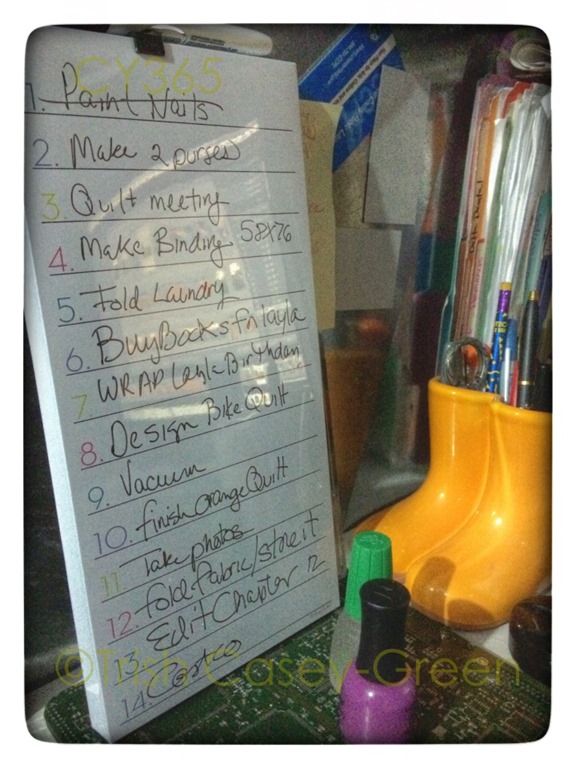 CY365
1. Paint Nails
2. Make 2 purses
3. Quilt meeting
4. Make Binding 58x76
5. Fold Laundry
6. Buy Books fn layla
7. WRAP Layla Birthday
8. Design Bike Quilt
9. Vacuum
10. finish Orange Quilt
11. Take photos
12. fold fabric/store it
13. Edit Chapter 12
14. Costco
©Trish Casey-Green